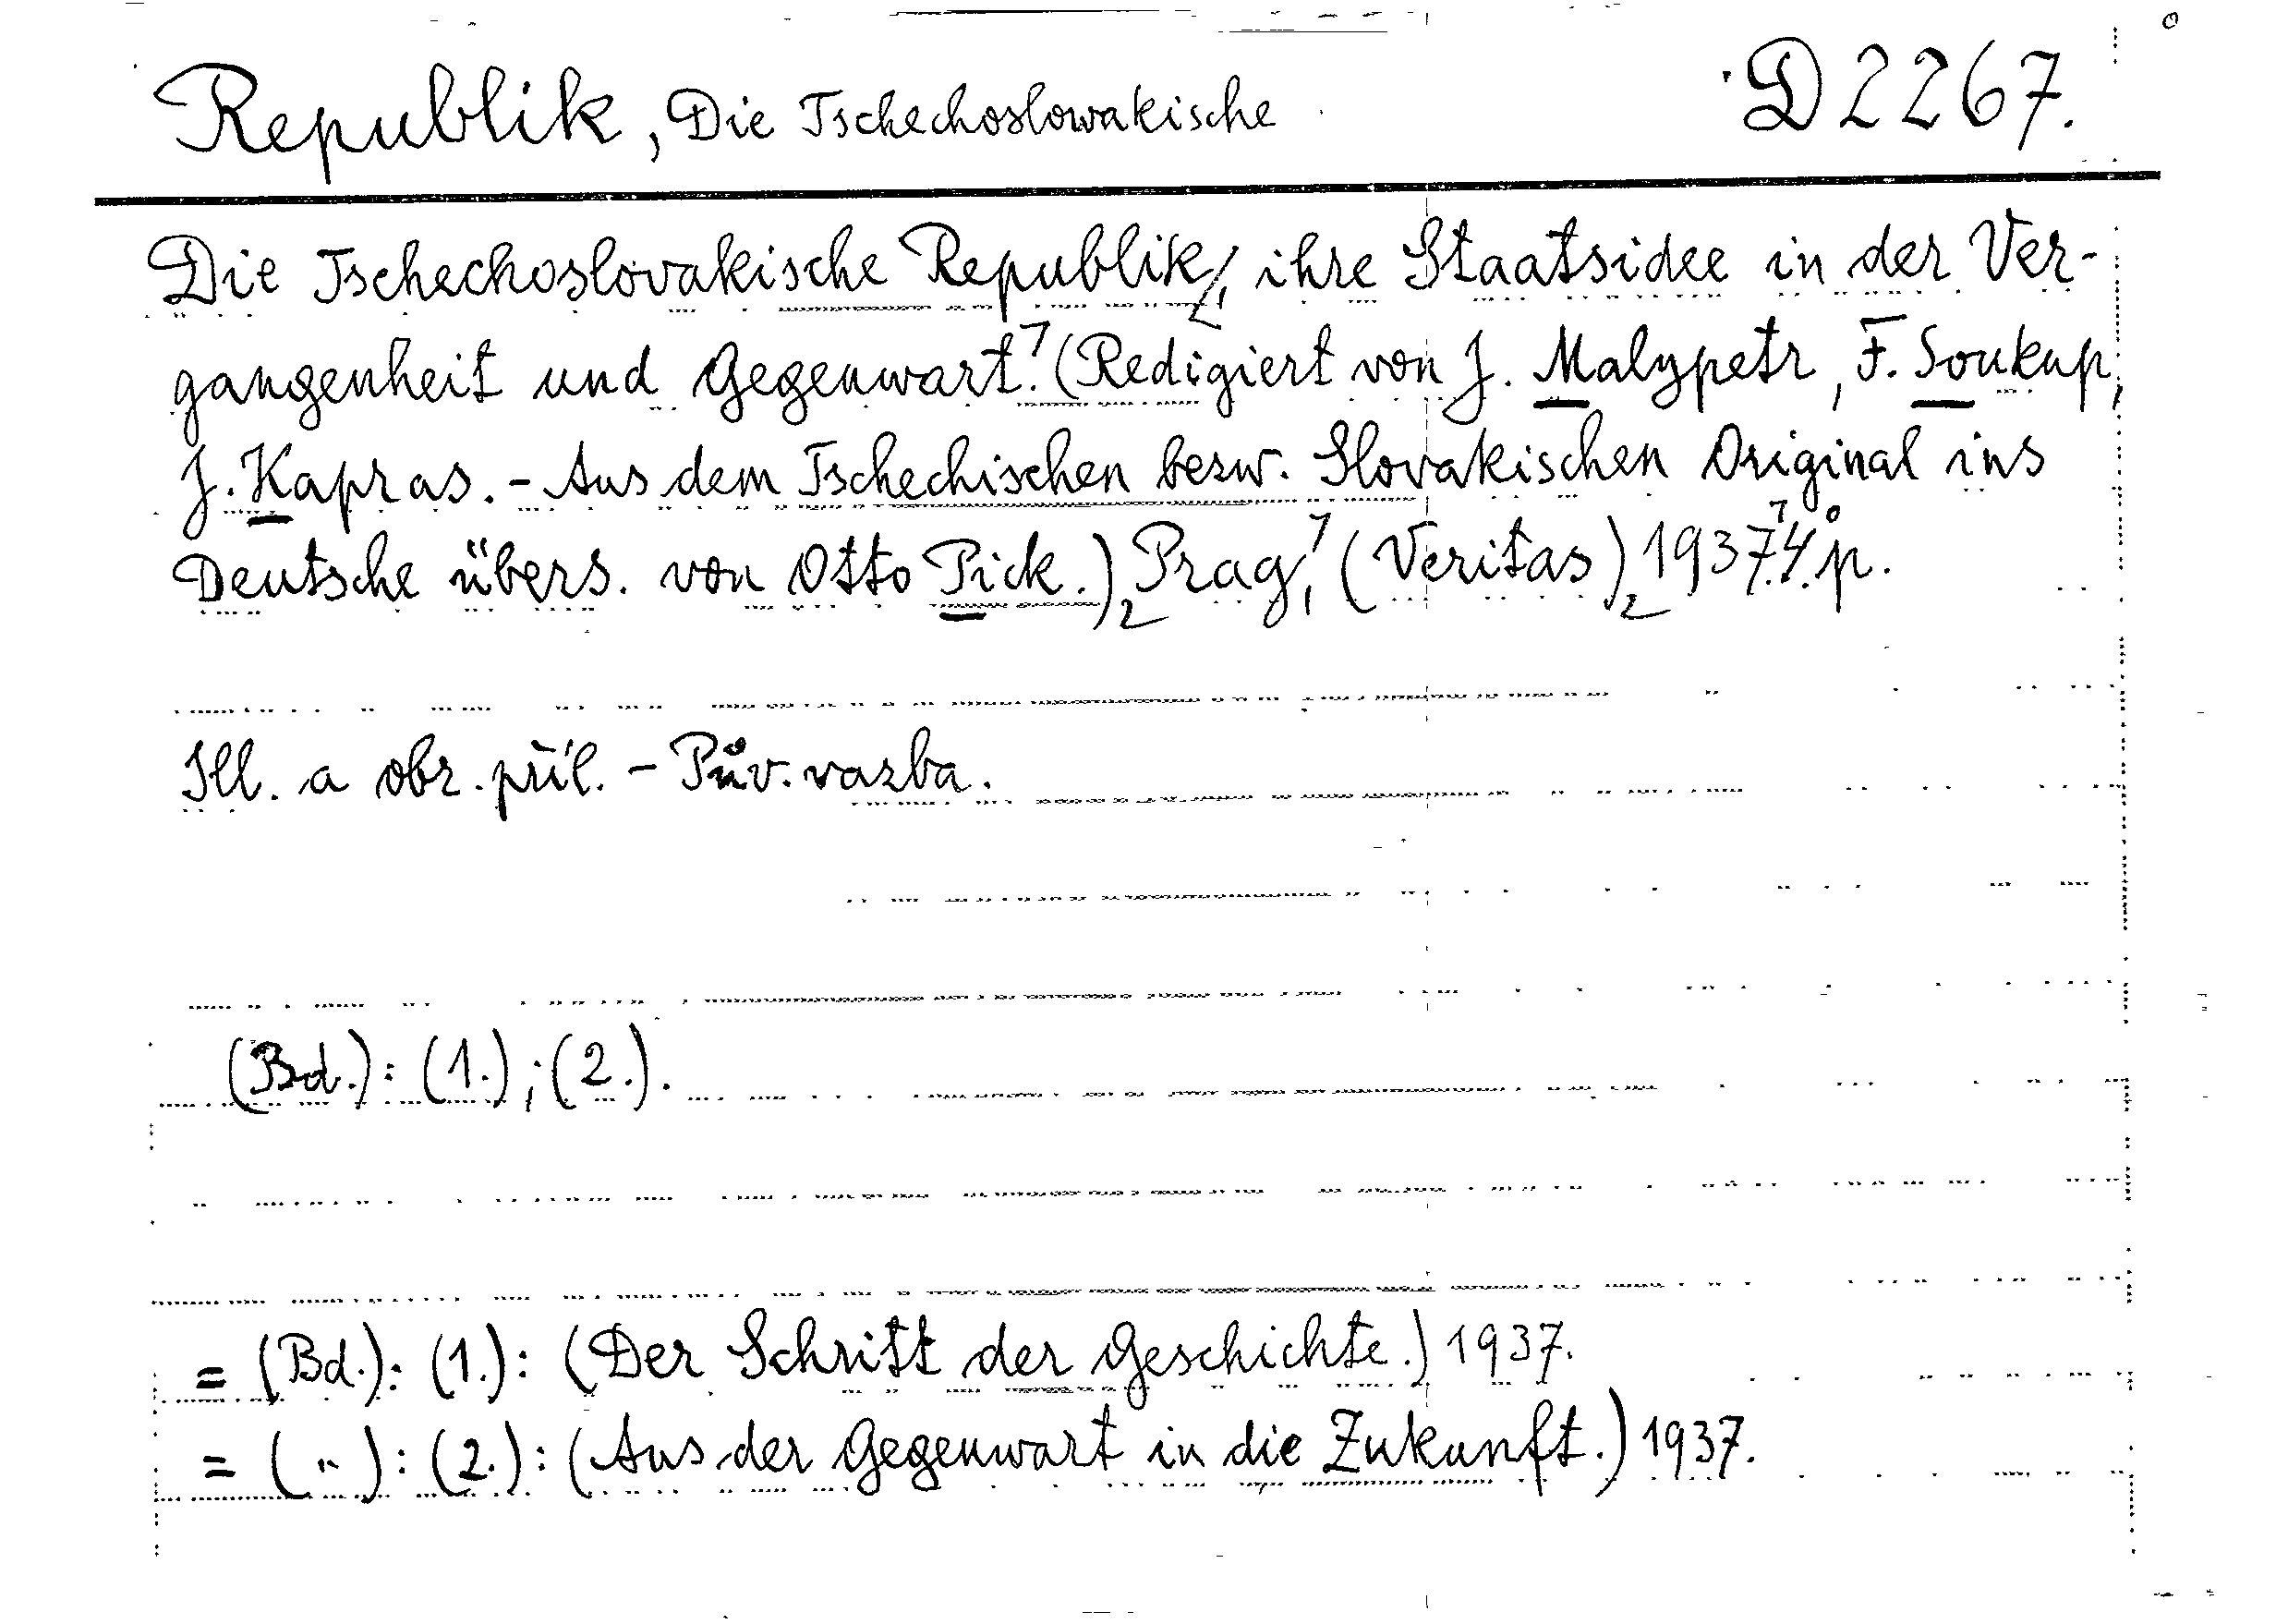 Republik, Die Tschechoslowakische D 2267.
Die Tschechoslovakische Republik, ihre Staatsidee in der Ver-
gangenheit und Gegenwart. (Redigiert von J. Malypetr, F. Soukup,
J. Kapras. - Aus dem Tschechischen bezw. Slovakischen Original ins
Deutsche übers. von Otto Pick.) Prag, (Veritas) 1937. 4° p.
Ill. a obr. příl. - Pův. vazba.
(Bd.): (1.); (2.).
= (Bd.): (1.): (Der Schritt der Geschichte.) 1937.
= ( " ): (2.): (Aus der Gegenwart in die Zukunft.) 1937.